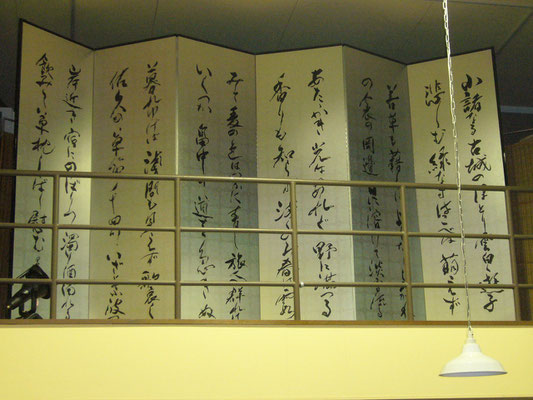 小諸なる古城のほとり雲白く遊子
悲しむ緑なすはこべは萌えず
若草も藉くによしなししろがね
の衾の岡辺日に溶けて淡雪流る
あたゝかき光はあれど野に満つる
香りも知らず浅くのみ春は霞
みて麦の色はわづかに青し旅人群れは
いくつか畠中の道を急ぎぬ
暮れ行けば浅間も見えず歌哀し
佐久の草笛千曲川いざよふ波の
岸近き宿にのぼりつ濁り酒濁れる
飲みて草枕しばし慰む